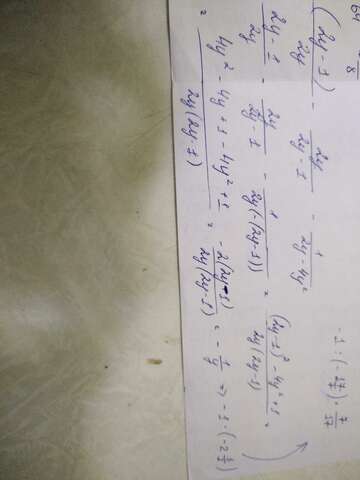 64
8
(2y-1)/2y - 2y/(2y-1) - 1/(2y-4y²)
(2y-1)/2y - 2y/(2y-1) - 1/(2y(-(2y-1))) = ((2y-1)² - 4y² + 1)/(2y(2y-1)) =
= (4y² - 4y + 1 - 4y² + 1)/(2y(2y-1)) = (-2(2y-1))/(2y(2y-1)) = -1/y ⇒ -1 : (-2 3/7)
-1 : (-17/7) = 7/17